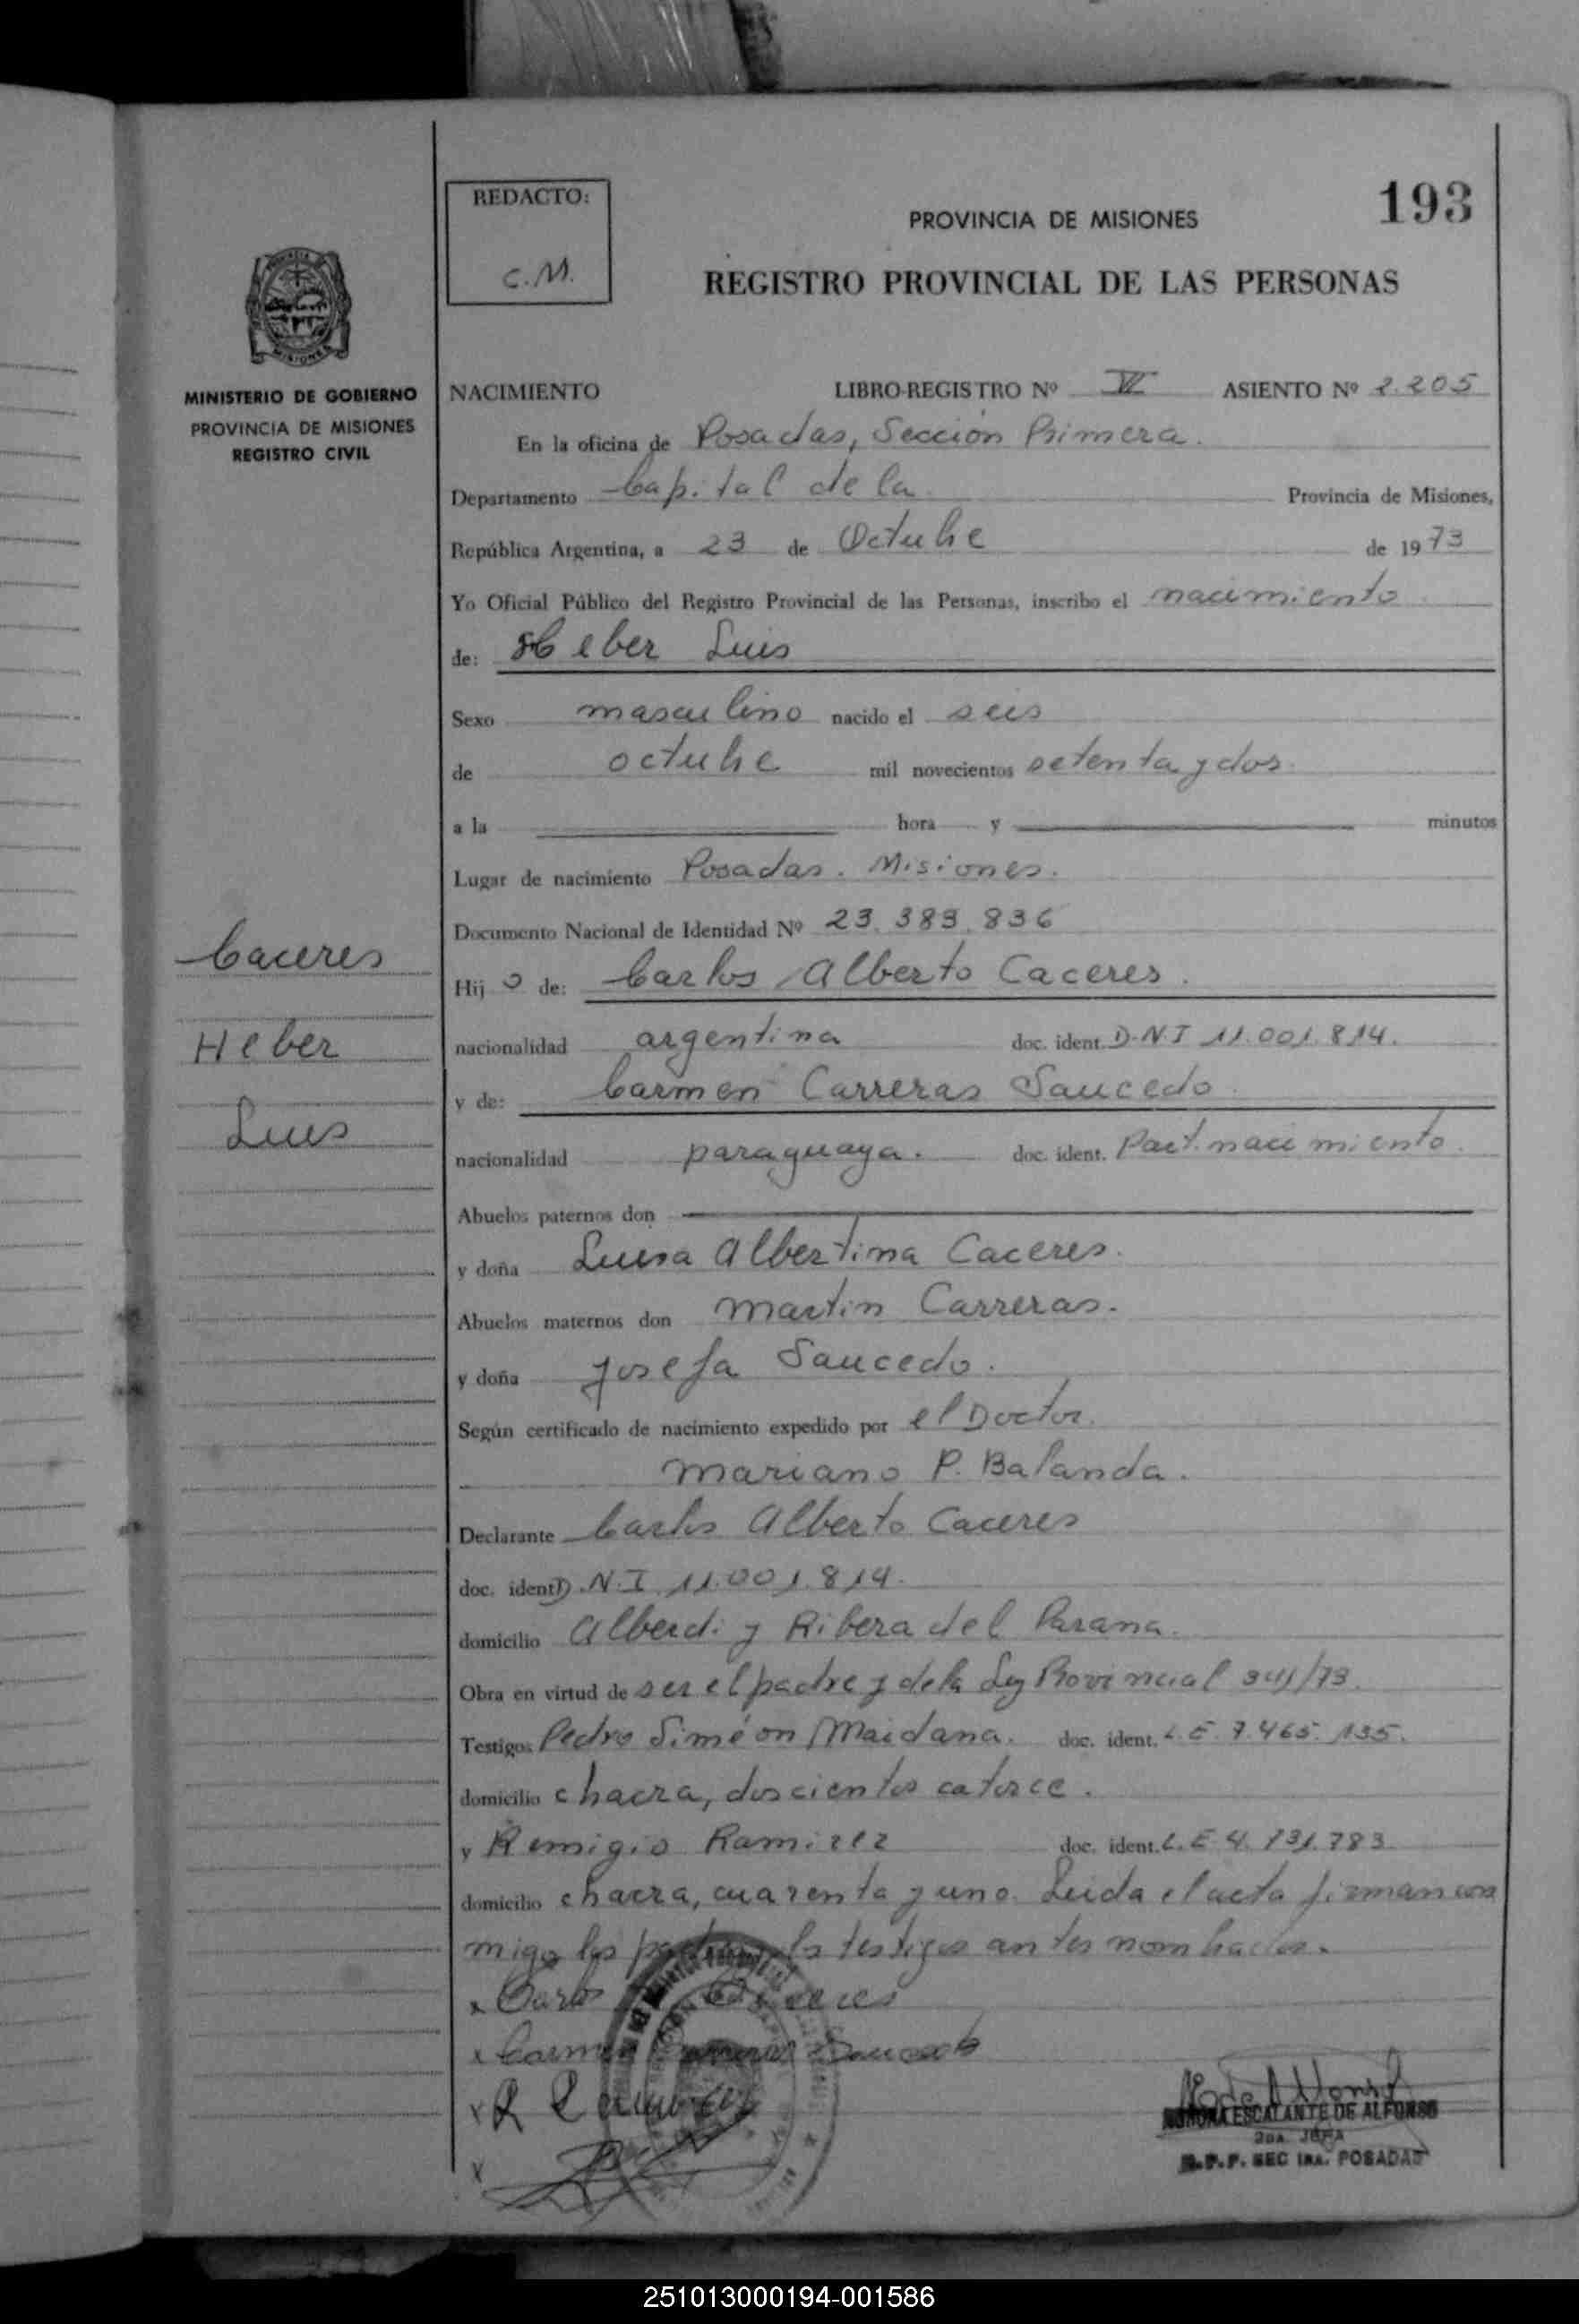 193
REDACTO:
C.M.
PROVINCIA DE MISIONES
REGISTRO PROVINCIAL DE LAS PERSONAS
MISIONES
MINISTERIO DE GOBIERNO
PROVINCIA DE MISIONES
REGISTRO CIVIL
NACIMIENTO LIBRO-REGISTRO Nº VI ASIENTO Nº 2.205
En la oficina de Posadas, Sección Primera.
Departamento Capital de la Provincia de Misiones,
República Argentina, a 23 de Octubre de 1973
Yo Oficial Público del Registro Provincial de las Personas, inscribo el nacimiento
de: Heber Luis
Sexo masculino nacido el seis
de octubre mil novecientos setenta y dos
a la hora y minutos
Lugar de nacimiento Posadas. Misiones.
Documento Nacional de Identidad Nº 23.383.836
Caceres
Heber
Luis
Hijo de: Carlos Alberto Caceres.
nacionalidad argentina doc. ident. D.N.I 11.001.814.
y de: Carmen Carreras Saucedo.
nacionalidad paraguaya. doc. ident. Part. nacimiento.
Abuelos paternos don
y doña Luisa Albertina Caceres.
Abuelos maternos don Martin Carreras.
y doña Josefa Saucedo.
Según certificado de nacimiento expedido por el Doctor.
Mariano P. Balanda.
Declarante Carlos Alberto Caceres
doc. ident D.N.I 11.001.814.
domicilio Alberdi y Ribera del Parana.
Obra en virtud de ser el padre y de la Ley Provincial 341/73.
Testigos Pedro Siméon Maidana. doc. ident. L.E 7.465.135.
domicilio chacra, doscientos catorce.
y Remigio Ramirez doc. ident. L.E 4.731.783
domicilio chacra, cuarenta y uno. Leida el acta firman con
migo los testigos antes nombrados.
x Carlos Caceres
x Carmen Saucedo
x R Ramirez
x
ESCALANTE DE ALFONSO
2DA. JEFA
R.P.P. SEC 1RA. POSADAS
251013000194-001586